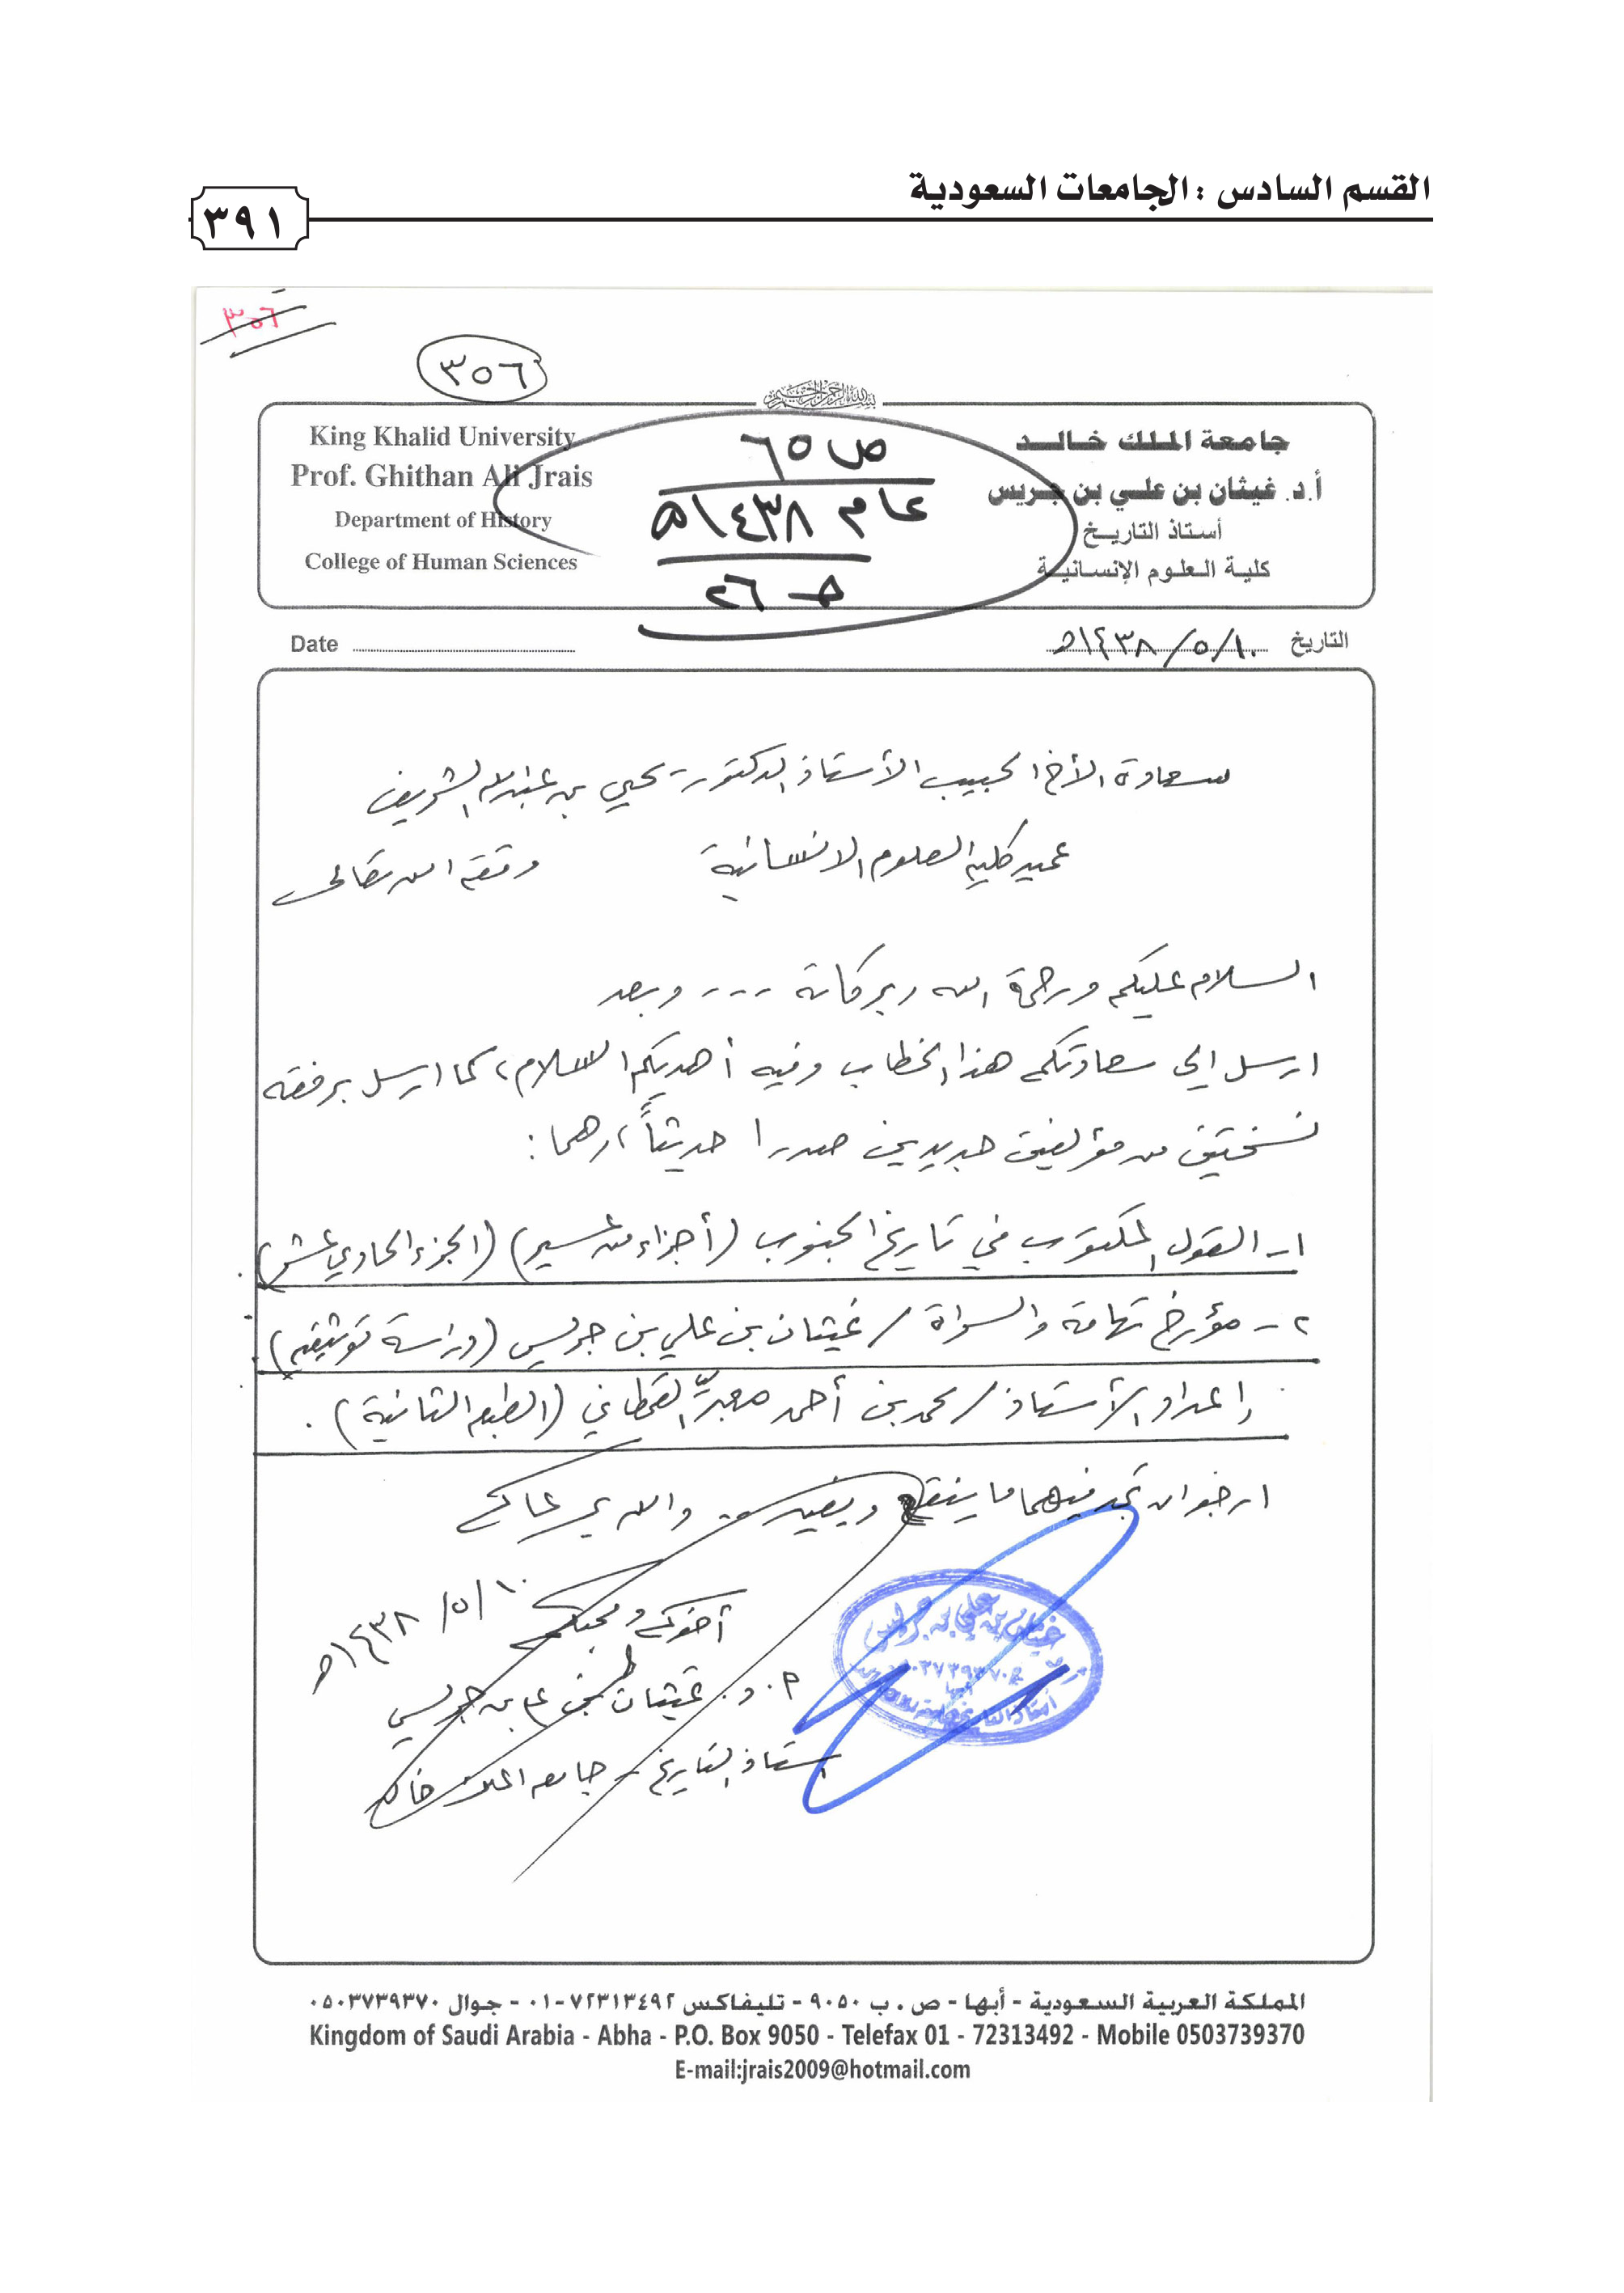 القسم السادس : الجامعات السعودية
٣٩١
٣٥٦
٣٥٦
بسم الله الرحمن الرحيم
King Khalid University
Prof. Ghithan Ali Jrais
Department of History
College of Human Sciences
ص ٦٥
عام ١٤٣٨هـ
حـ ٢٦
جامعة الملك خالد
أ.د. غيثان بن علي بن جريس
أستاذ التاريخ
كلية العلوم الإنسانية
Date
التاريخ ١٠/٥/١٤٣٨هـ
سعادة الأخ الحبيب الأستاذ الدكتور يحيى بن عبدالله الشريف
عميد كلية العلوم الانسانية وفقه الله تعالى
السلام عليكم ورحمة الله وبركاته ... وبعد
ارسل إلى سعادتكم هذا الخطاب وفيه أهديكم السلام، كما ارسل برفقه
نسختين من مؤلفين جديدين صدرا حديثاً، وهما:
١- القول المكتوب في تاريخ الجنوب (أجزاء من عسير) (الجزء الحادي عشر).
٢- مؤرخ تهامة والسراة / غيثان بن علي بن جريس (دراسة توثيقية).
إعداد الأستاذ / محمد بن أحمد معبر القحطاني (الطبعة الثانية).
ارجو ان تجد فيهما ما ينفع ويفيد .. والله يرعاكم
أخوكم ومحبكم
١٠/٥/١٤٣٨هـ
أ.د. غيثان بن علي بن جريس
استاذ التاريخ - جامعة الملك خالد
غيثان بن علي بن جريس
٠٥٠٣٧٣٩٣٧٠
أبها
المملكة العربية السعودية - أبها - ص . ب ٩٠٥٠ - تليفاكس ٧٢٣١٣٤٩٢-٠١ - جوال ٠٥٠٣٧٣٩٣٧٠
Kingdom of Saudi Arabia - Abha - P.O. Box 9050 - Telefax 01 - 72313492 - Mobile 0503739370
E-mail:jrais2009@hotmail.com